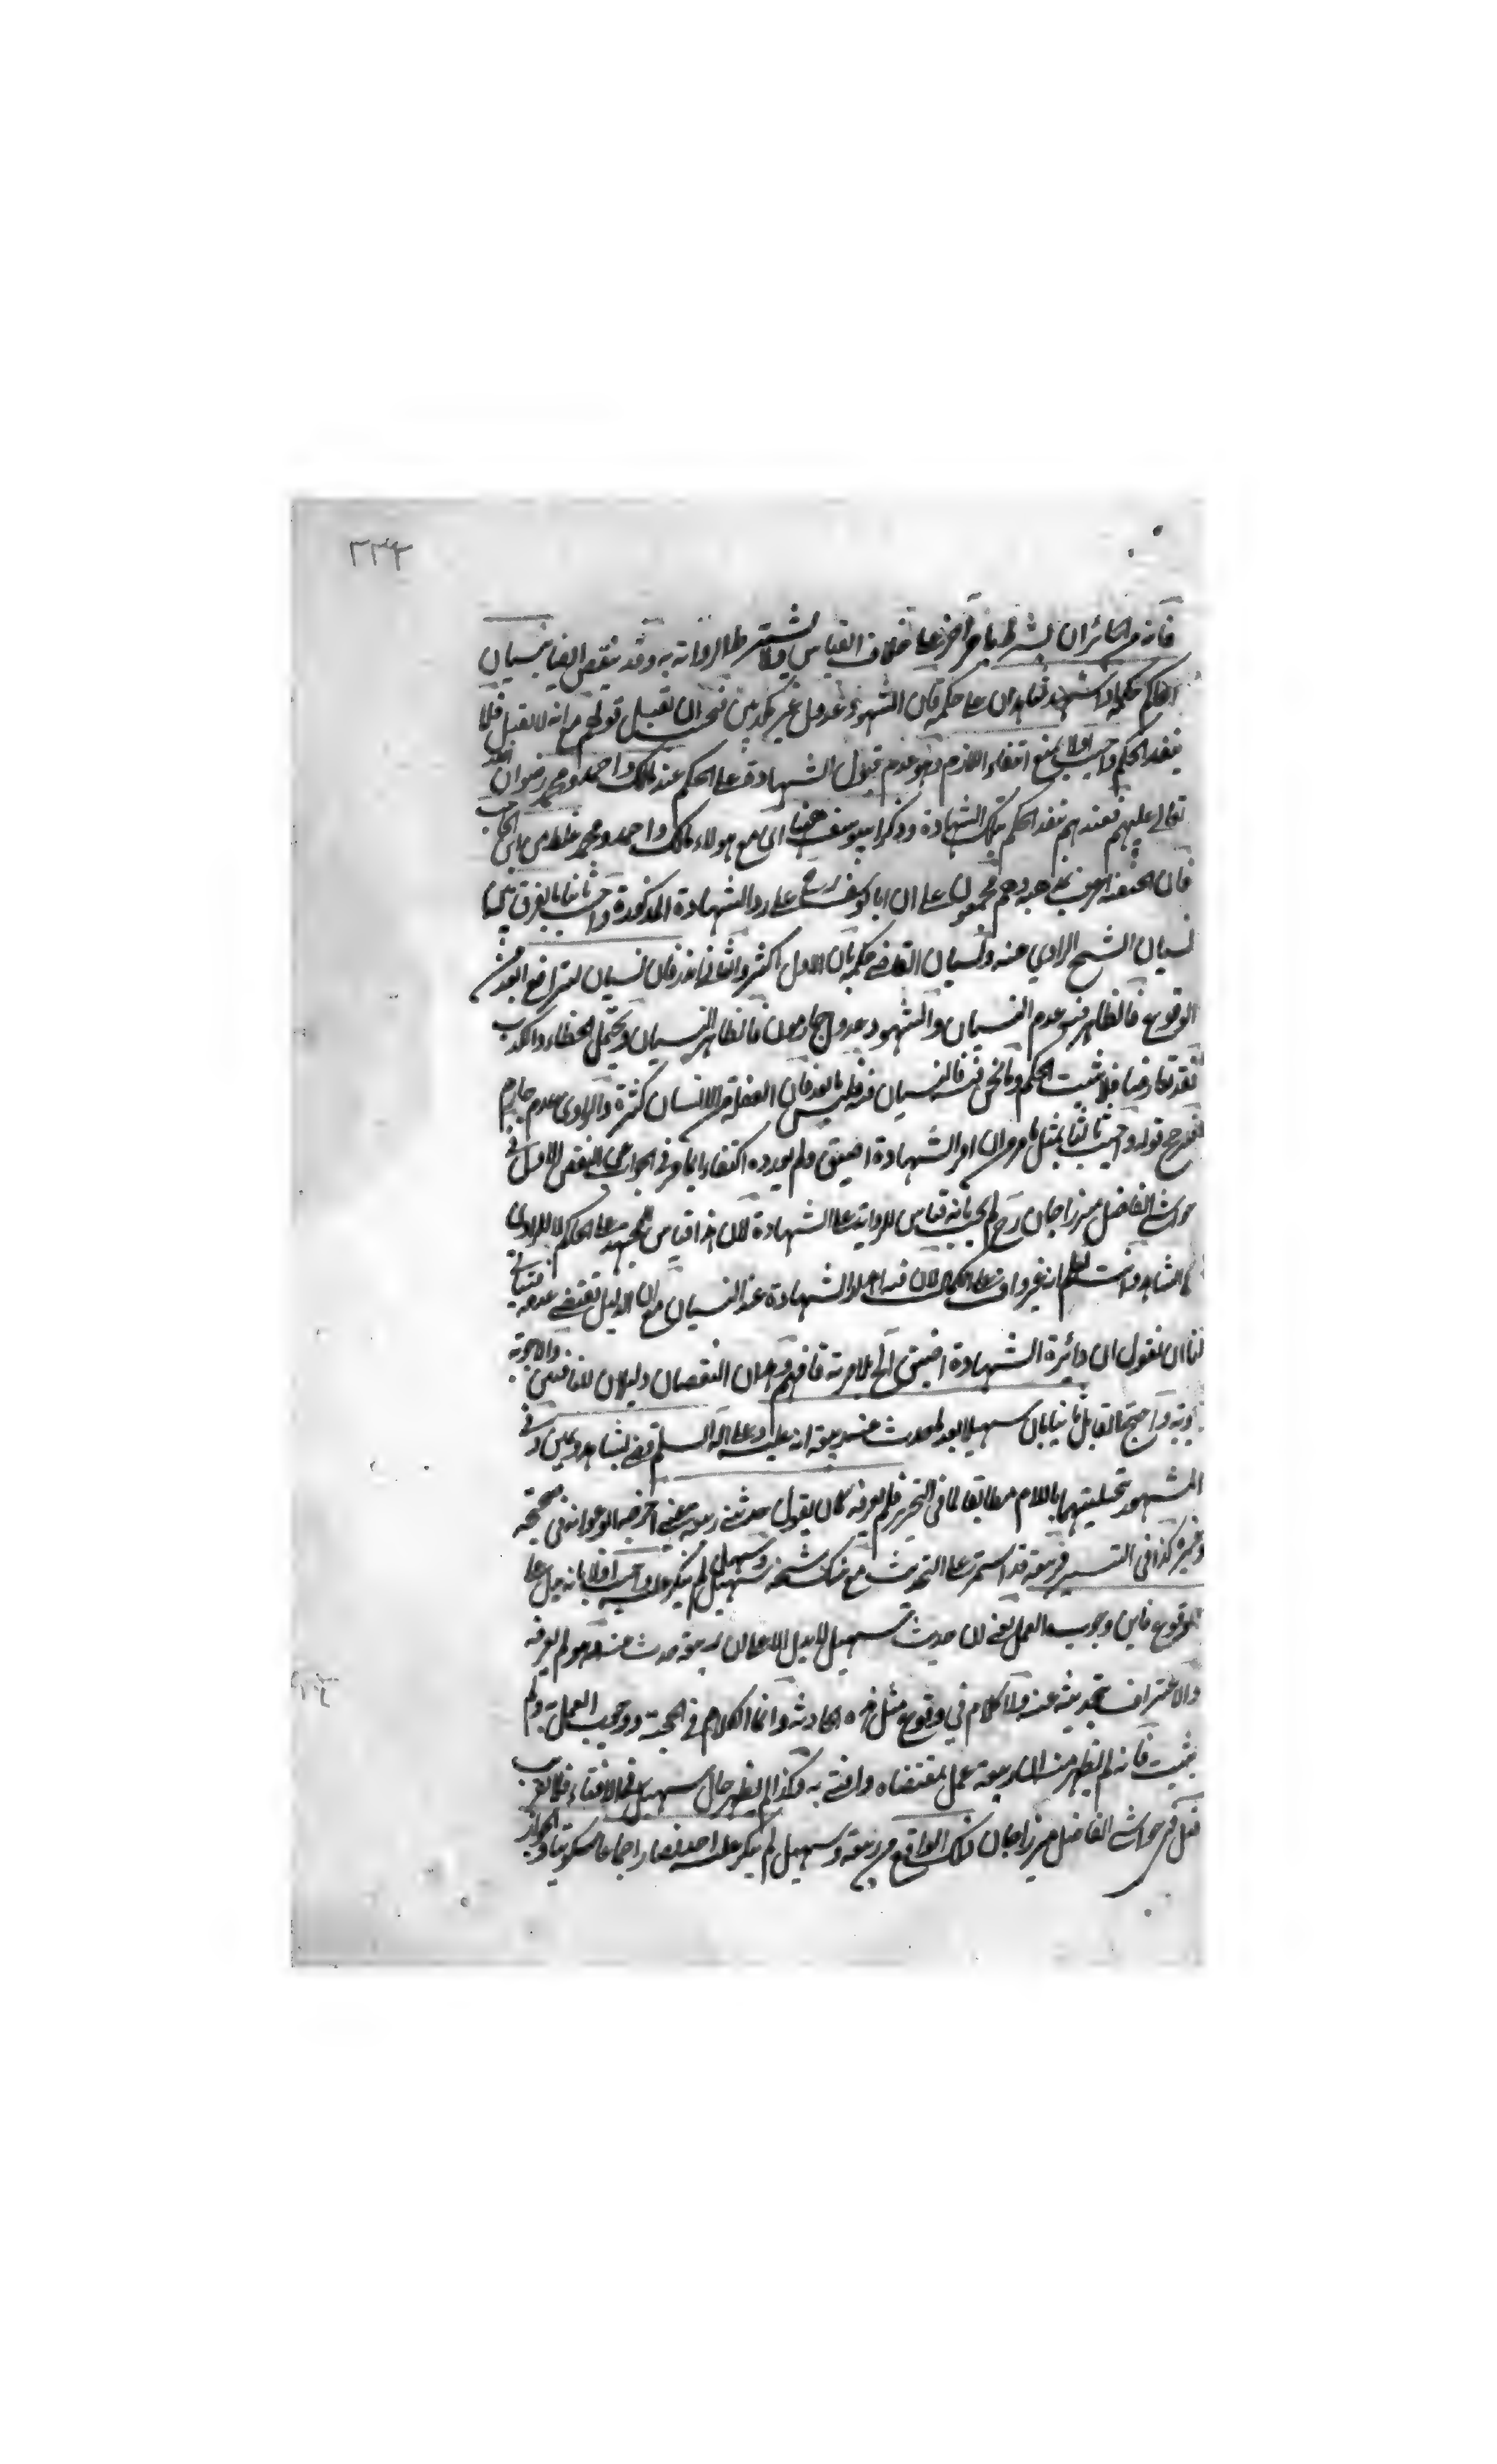 ٣٣٤
فانه من الجائز ان يشترط باجر اخر على خلاف القياس ولا يشترط الرواية به وقد ينقض ايضا بنسيان
الحاكم حكمه اذا شهد شاهدان على حكمه فان الشهود عدول غير مكذبين فيجب ان يقبل قولهم مع انه لا يقبل فلا
ينفذ الحكم واجيب اولا بمنع انتفاء اللازم وهو عدم قبول الشهادة على الحكم عند مالك واحمد ومحمد رضوان الله
تعالى عليهم فعندهم ينفذ الحكم بتلك الشهادة وذكر ابي يوسف ههنا اي مع هولاء مالك واحمد ومحمد غلط من ابن الحاجب
فان الحنفية اعرف بمذهبه وهم مجمعون على ان ابا يوسف رح على رد الشهادة المذكورة واجيب ثانيا بالفرق بين
نسيان الشيخ الراوي عنه ونسيان القاضي حكمه بان الاول اكثر والثاني اندر فان نسيان الترافع ابعد من
الوقوع فالظاهر فيه عدم النسيان والشهود عدول جازمون فالظاهر النسيان ويحتمل الخطاء والكذب
فقد تعارضا فلا يثبت الحكم وما نحن فيه فالنسيان فيه ليس بابعد فان الغفلة من الانسان كثيرة والراوي عدل جازم
فيرجح قوله واجيب ثالثا بمثل ما مر من ان امر الشهادة اضيق ولم يورده اكتفاء بما مر في الجواب عن النقض الاول في
حواشي الفاضل ميرزا جان رح لم يجب بانه قياس للرواية على الشهادة لان هذا قياس المجتهد على الحاكم لا للراوي
على الشاهد وانت تعلم انه غير واف على الكمال لان فيه اهدار الشهادة عند النسيان مع ان الدليل يقتضي عدمه فيتاتى
لنا ان نقول ان دائرة الشهادة اضيق الى آخر ما مر فافهم وهذان النقضان دليلان للنافين والاجوبة
اجوبة واحتج القابل ثانيا بان سهيلا بعد ما حدث عنه ربيعة انه عليه وعلى آله السلام قضى بشاهد ويمين وفي
المشهور تحليتهما باللام مطابقا لما في التحرير فلم يعرفه كان يقول حدثني ربيعة عني اخرجه ابو عوانة في صحيحه
وغيره كذا في التيسير فربيعة قد استمر على التحديث مع شك شيخه سهيل وسهيل لم ينكر عليه واجيب اولا بانه دليل على
الوقوع فاين وجوب العمل يعني ان حديث سهيل لا يدل الا على ان ربيعة حدث عنه وهو لم يعرفه
والاعتراف بتحديثه عنه ولا كلام في وقوع مثل هذه الحادثة وانما الكلام في الحجية ووجوب العمل به ولم
يثبت فانه لم يظهر منه ان ربيعة عمل بمقتضاه وافتى به وكذا لم يظهر حال سهيل في الافتاء فلا تقريب
قيل في حواشي الفاضل ميرزا جان ذلك الواقع من ربيعة وسهيل لم ينكر عليه احد فصار اجماعا سكوتيا والجواز